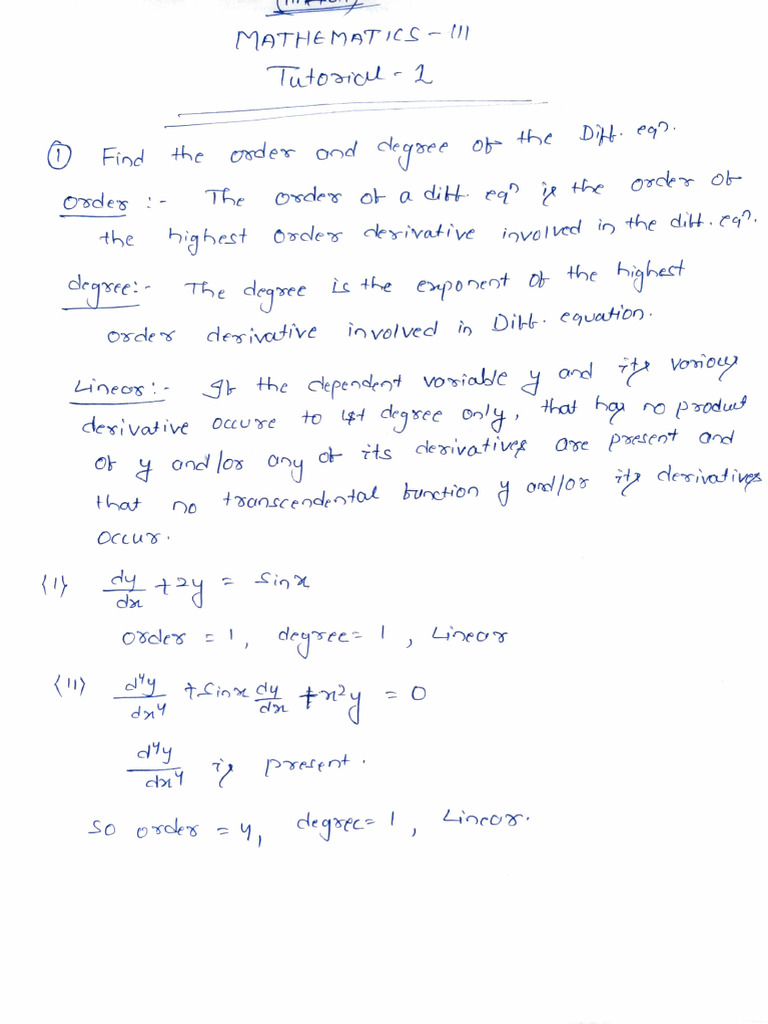 MATHEMATICS - III
Tutorial - 1
① Find the order and degree of the Diff. eqn.
Order :- The order of a diff. eqn is the order of
the highest order derivative involved in the diff. eqn.
degree:- The degree is the exponent of the highest
order derivative involved in Diff. equation.
Linear:- If the dependent variable y and its various
derivative occure to 1st degree only, that has no product
of y and/or any of its derivatives are present and
that no transcendental function y and/or its derivatives
occur.
{I} dy/dx + 2y = sinx
order = 1, degree = 1, Linear
{II} d⁴y/dx⁴ + sinx dy/dx + x²y = 0
d⁴y/dx⁴ is present.
so order = 4, degree = 1, Linear.